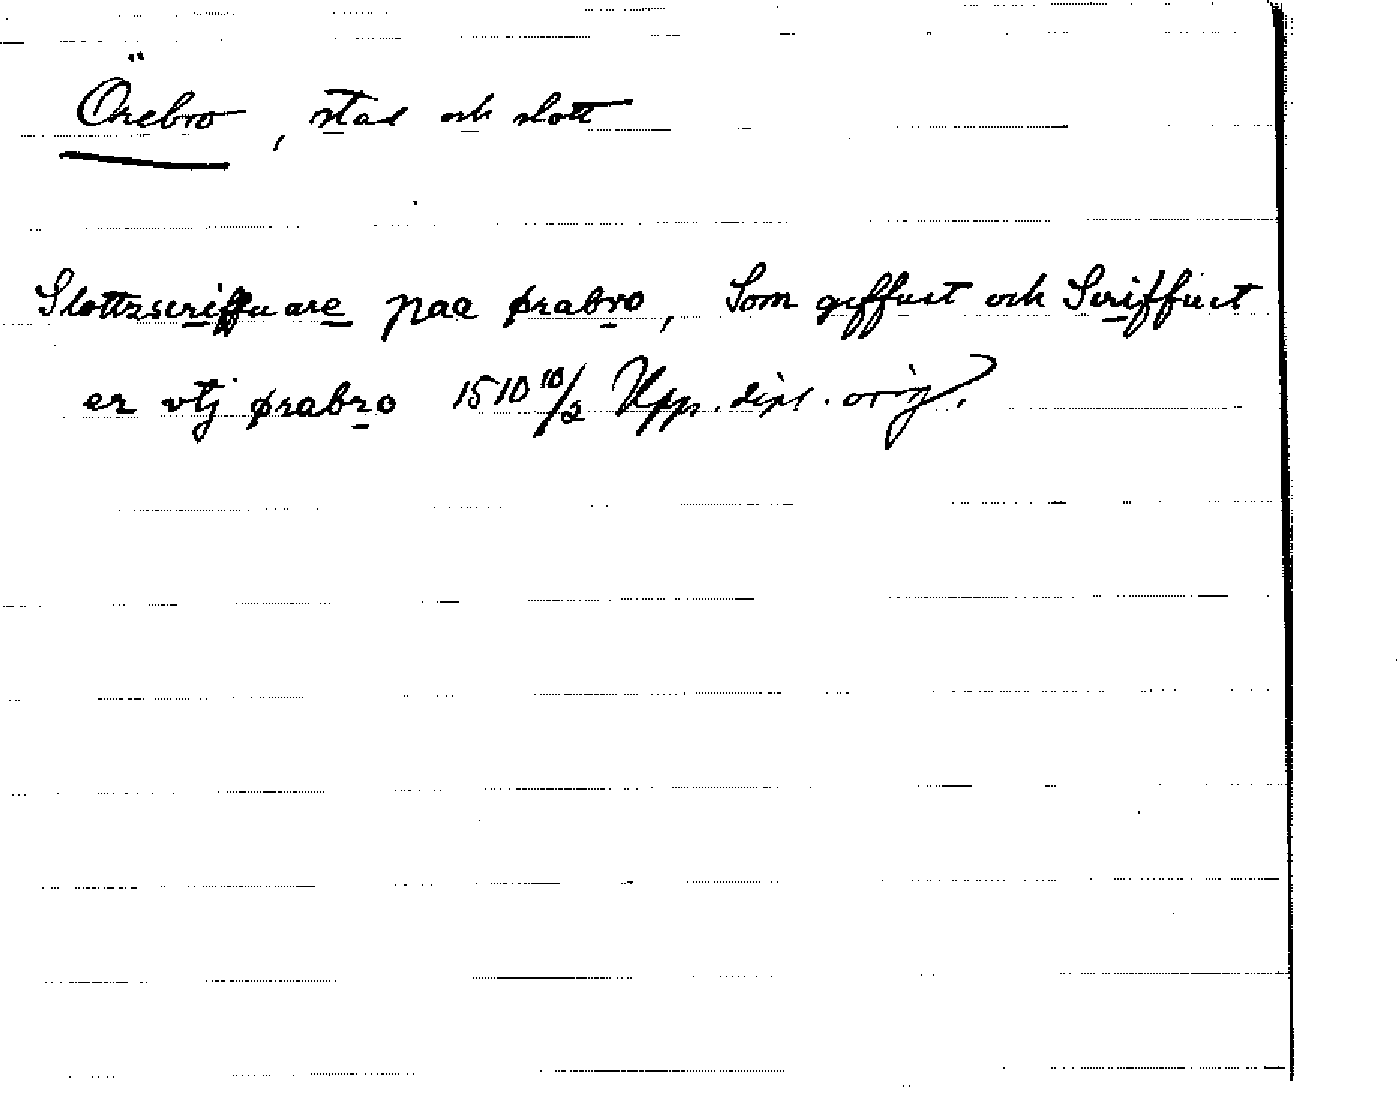 Örebro, stad och slott
Slottzscriffuare paa ørabro, Som giffuit och Scriffuit
er vtj ørabro 1510 10/2 Upp. dipl. orig.